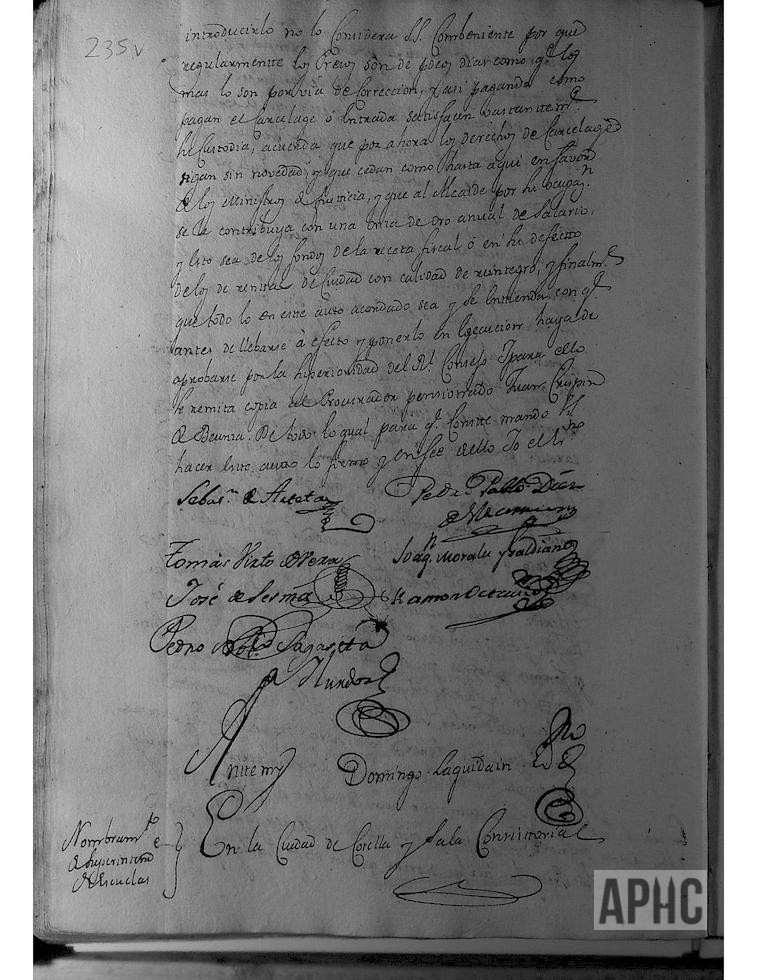 235v
introducirlo no lo Considera SS. Combeniente por que
regularmente los Presos son de pocos dias como q.e los
mas lo son por via de Correccion, y asi pagando como
pagan el Carcelage ô Entrada satisfacen bastantem.te
su Custodia, acuerda que por ahora los derechos de Carcelage
sigan sin novedad, y que cedan como hasta aqui en favor
de los Ministros de Justicia, y que al Alcaide por su ocupaz.n
se le contribuya con una onza de oro anual de Salario,
y esto sea de los fondos de la receta fiscal ô en su defecto
de los de rentas de Ciudad con calidad de reintegro, y finalm.e
que todo lo en este auto acordado sea y se entienda con q.e
antes de llebarse à efecto y ponerlo en Egecucion haya de
aprobarse por la Superioridad del R.l Consejo y para ello
se remita copia al Procurador pensionado Juan Crispin
de Beunza. De todo lo qual para q.e Conste mando SS.
hacer este auto lo firmo y en fee de ello Yo el Ss.no
Sebas.n de Arteta
Pedro Pablo Diaz
Tomàs Virto de Vera
Joaq.n Morales y
José de Sesma
Ramon
Pedro Sagaseta
Antemy Domingo Laquidain
Nombram.to
de Superintend
de Escuelas
En la Ciudad de Corella y Sala Consistorial
APHC